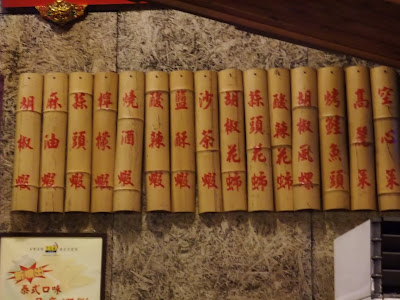 胡椒蝦
麻油蝦
蒜頭蝦
檸檬蝦
燒酒蝦
酸辣蝦
鹽酥蝦
沙茶蝦
胡椒花
蒜頭花
酸辣花
胡椒風螺
烤鮭魚頭
高麗菜
空心菜
泰式口味